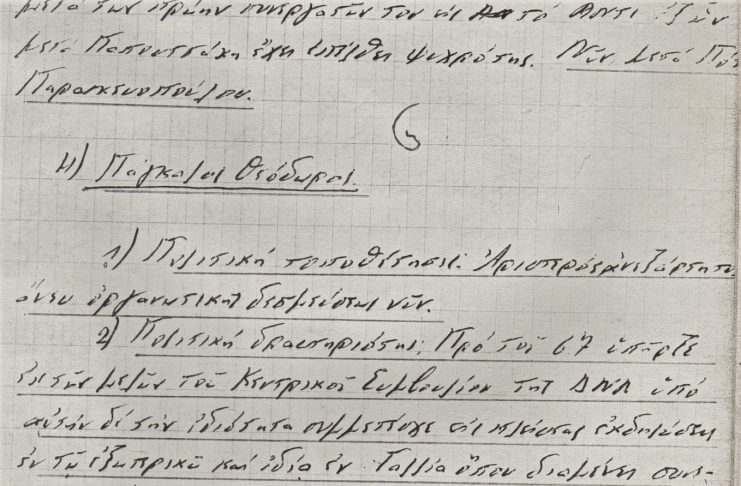 μετά των πρώην συνεργατών του εις το Αντί ἐξ ὧν
μετά Παπουτσάκη ἔχει ἐπέλθει ψυχρότης. Νῦν μετά
Παρασκευοπούλου.
Η) Πάγκαλος Θεόδωρος.
1) Πολιτική τοποθέτησις: Ἀριστερός ἀνεξάρτητος
ἄνευ ὀργανωτικῆς δεσμεύσεως νῦν.
2) Πολιτική δραστηριότης: Πρό τοῦ 67 ὑπῆρξε
ἐκ τῶν μελῶν τοῦ Κεντρικοῦ Συμβουλίου της ΔΝΛ ὑπό
αὐτήν δέ τήν ἰδιότητα συμμετέσχε εἰς πλείστας ἐκδηλώσεις
ἐν τῷ ἐξωτερικῷ καί ἰδίᾳ ἐν Γαλλία ὅπου διαμένει συνε-